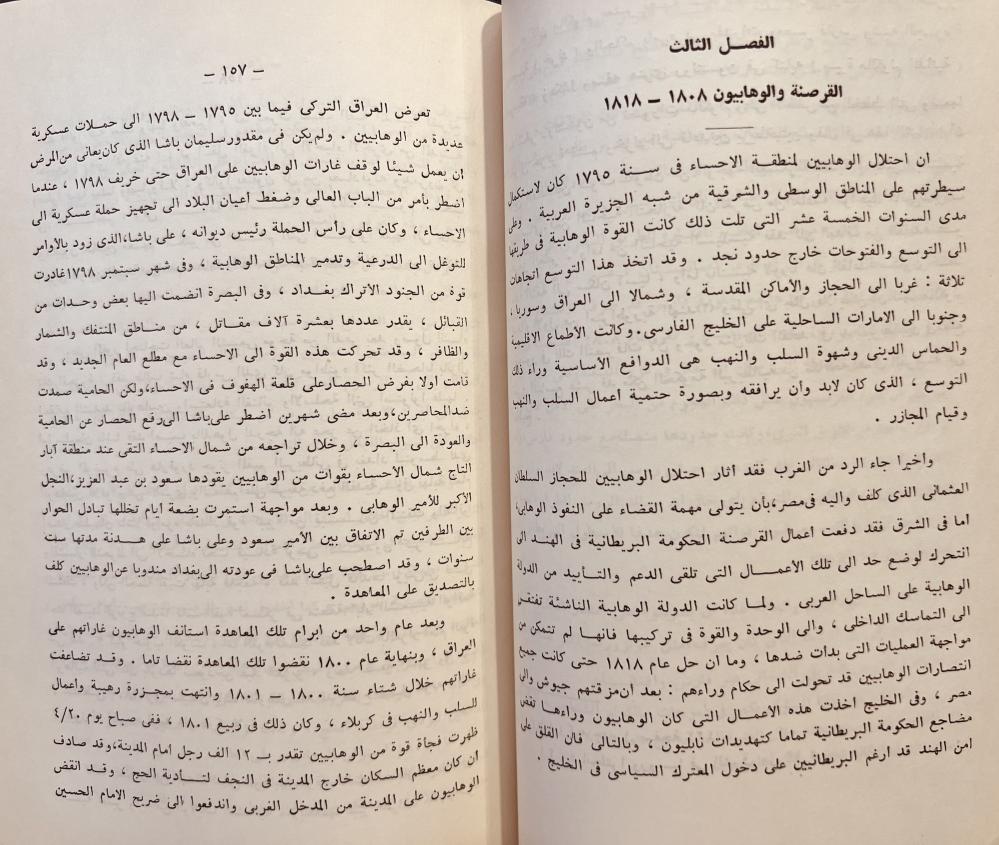 الفصل الثالث
القرصنة والوهابيون ١٨٠٨ — ١٨١٨
ان احتلال الوهابيين لمنطقة الاحساء فى سنة ١٧٩٥ كان لاستكمال
سيطرتهم على المناطق الوسطى والشرقية من شبه الجزيرة العربية . وعلى
مدى السنوات الخمسة عشر التى تلت ذلك كانت القوة الوهابية فى طريقها
الى التوسع والفتوحات خارج حدود نجد . وقد اتخذ هذا التوسع اتجاهات
ثلاثة : غربا الى الحجاز والأماكن المقدسة ، وشمالا الى العراق وسوريا ،
وجنوبا الى الامارات الساحلية على الخليج الفارسى. وكانت الأطماع الاقليمية
والحماس الدينى وشهوة السلب والنهب هى الدوافع الاساسية وراء ذلك
التوسع ، الذى كان لابد وأن يرافقه وبصورة حتمية أعمال السلب والنهب
وقيام المجازر .
واخيرا جاء الرد من الغرب فقد أثار احتلال الوهابيين للحجاز السلطان
العثمانى الذى كلف واليه فى مصر، بأن يتولى مهمة القضاء على النفوذ الوهابى؛
اما فى الشرق فقد دفعت أعمال القرصنة الحكومة البريطانية فى الهند الى
التحرك لوضع حد الى تلك الأعمـــال التى تلقى الدعم والتـأييد من الدولة
الوهابية على الساحل العربى . ولما كانت الدولة الوهابية الناشئة تفتقر
الى التماسك الداخلى ، والى الوحدة والقوة فى تركيبها فانها لم تتمكن من
مواجهة العمليات التى بدات ضدها ، وما ان حل عام ١٨١٨ حتى كانت جميع
انتصارات الوهابيين قد تحولت الى حكام وراءهم : بعد ان مزقتهم جيوش والى
مصر ، وفى الخليج اخذت هذه الاعمال التى كان الوهابيون وراءها تقض
مضاجع الحكومة البريطانية تماما كتهديدات نابليون ، وبالتالى فان القلق على
امن الهند قد ارغم البريطانيين على دخول المعترك السياسى فى الخليج .
— ١٥٧ —
تعرض العراق التركى فيما بين ١٧٩٥ — ١٧٩٨ الى حملات عسكرية
عديدة من الوهابيين . ولم يكن فى مقدور سليمان باشا الذى كان يعانى من المرض
أن يعمل شيئا لوقف غارات الوهابيين على العراق حتى خريف ١٧٩٨ ، عندما
اضطر بأمر من الباب العالى وضغط أعيان البلاد الى تجهيز حملة عسكرية الى
الاحساء ، وكان على رأس الحملة ورئيس ديوانه ، على باشا، الذى زود بالأوامر
للتوغل الى الدرعية وتدمير المناطق الوهابية ، وفى شهر سبتمبر ١٧٩٨ غادرت
قوة من الجنود الاتراك بغـداد ، وفى البصرة انضمت اليها بعض وحـدات من
القبائل ، يقدر عددها بعشرة آلاف مقـاتل ، من منـاطق المنتفك والشمار
والظافر ، وقد تحركت هذه القوة الى الاحساء مع مطلع العام الجديد ، وقد
قامت اولا بفرض الحصار على قلعة الهفوف فى الاحساء، ولكن الحامية صمدت
ضد المحاصرين، وبعد مضى شهرين اضطر على باشا الى رفع الحصار عن الحامية
والعودة الى البصرة ، وخلال تراجعه من شمال الاحساء التقى عند منطقة آبار
التاج شمال الاحساء بقوات من الوهابيين يقودها سعود بن عبد العزيز، النجل
الأكبر للأمير الوهابى . وبعد مواجهة استمرت بضعة ايام تخللها تبادل الحوار
بين الطرفين تم الاتفاق بين الأمير سعود وعلى باشا على هـدنة مدتها ست
سنوات ، وقد اصطحب على باشا فى عودته الى بغداد مندوبا عن الوهابيين كلف
بالتصديق على المعاهدة .
وبعد عام واحد من ابرام تلك المعاهدة استأنف الوهابيون غاراتهم على
العراق ، وبنهاية عام ١٨٠٠ نقضوا تلك المعاهدة نقضا تاما . وقـد تضاعفت
غاراتهم خلال شتاء سنة ١٨٠٠ — ١٨٠١ وانتهت بمجـزرة رهيبة واعمال
للسلب والنهب فى كربلاء ، وكان ذلك فى ربيع ١٨٠١ ، ففى صباح يوم ٤/٢٠
ظهرت فجأة قوة من الوهابيين تقدر بــ ١٢ الف رجل امام المدينة، وقد صادف
أن كان معظم السكان خارج المدينة فى النجف لتــادية الحج ، وقـد انقض
الوهابيون على المدينة من المدخل الغربى واندفعوا الى ضريح الامام الحسين